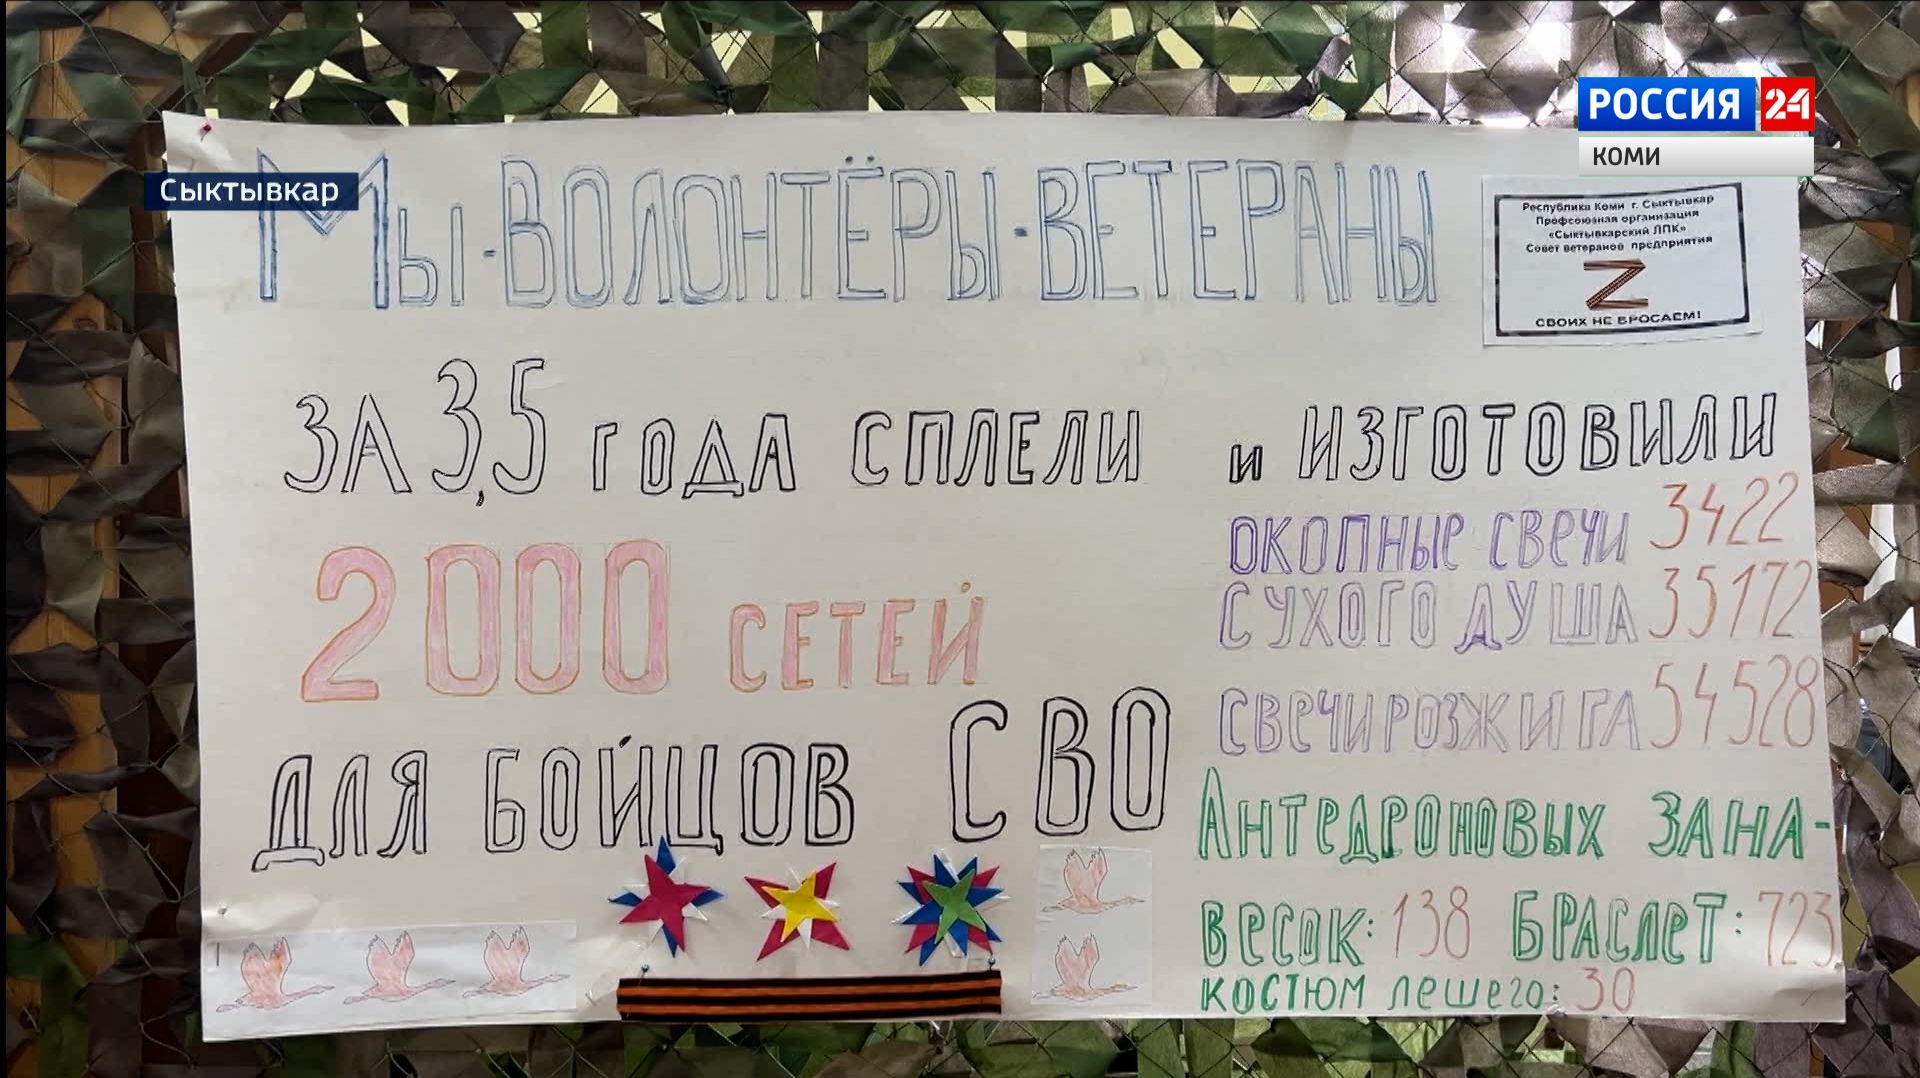 РОССИЯ 24
КОМИ
Сыктывкар
Мы - ВОЛОНТЁРЫ - ВЕТЕРАНЫ
Республика Коми г. Сыктывкар
Профсоюзная организация
«Сыктывкарский ЛПК»
Совет ветеранов предприятия
Z
СВОИХ НЕ БРОСАЕМ!
ЗА 3,5 ГОДА СПЛЕЛИ
2000 СЕТЕЙ
ДЛЯ БОЙЦОВ СВО
и ИЗГОТОВИЛИ
ОКОПНЫЕ СВЕЧИ 3422
СУХОГО ДУША 35172
СВЕЧИ РОЗЖИГА 54528
АНТЕДРОНОВЫХ ЗАНА-
ВЕСОК: 138 БРАСЛЕТ: 723
КОСТЮМ ЛЕШЕГО: 30